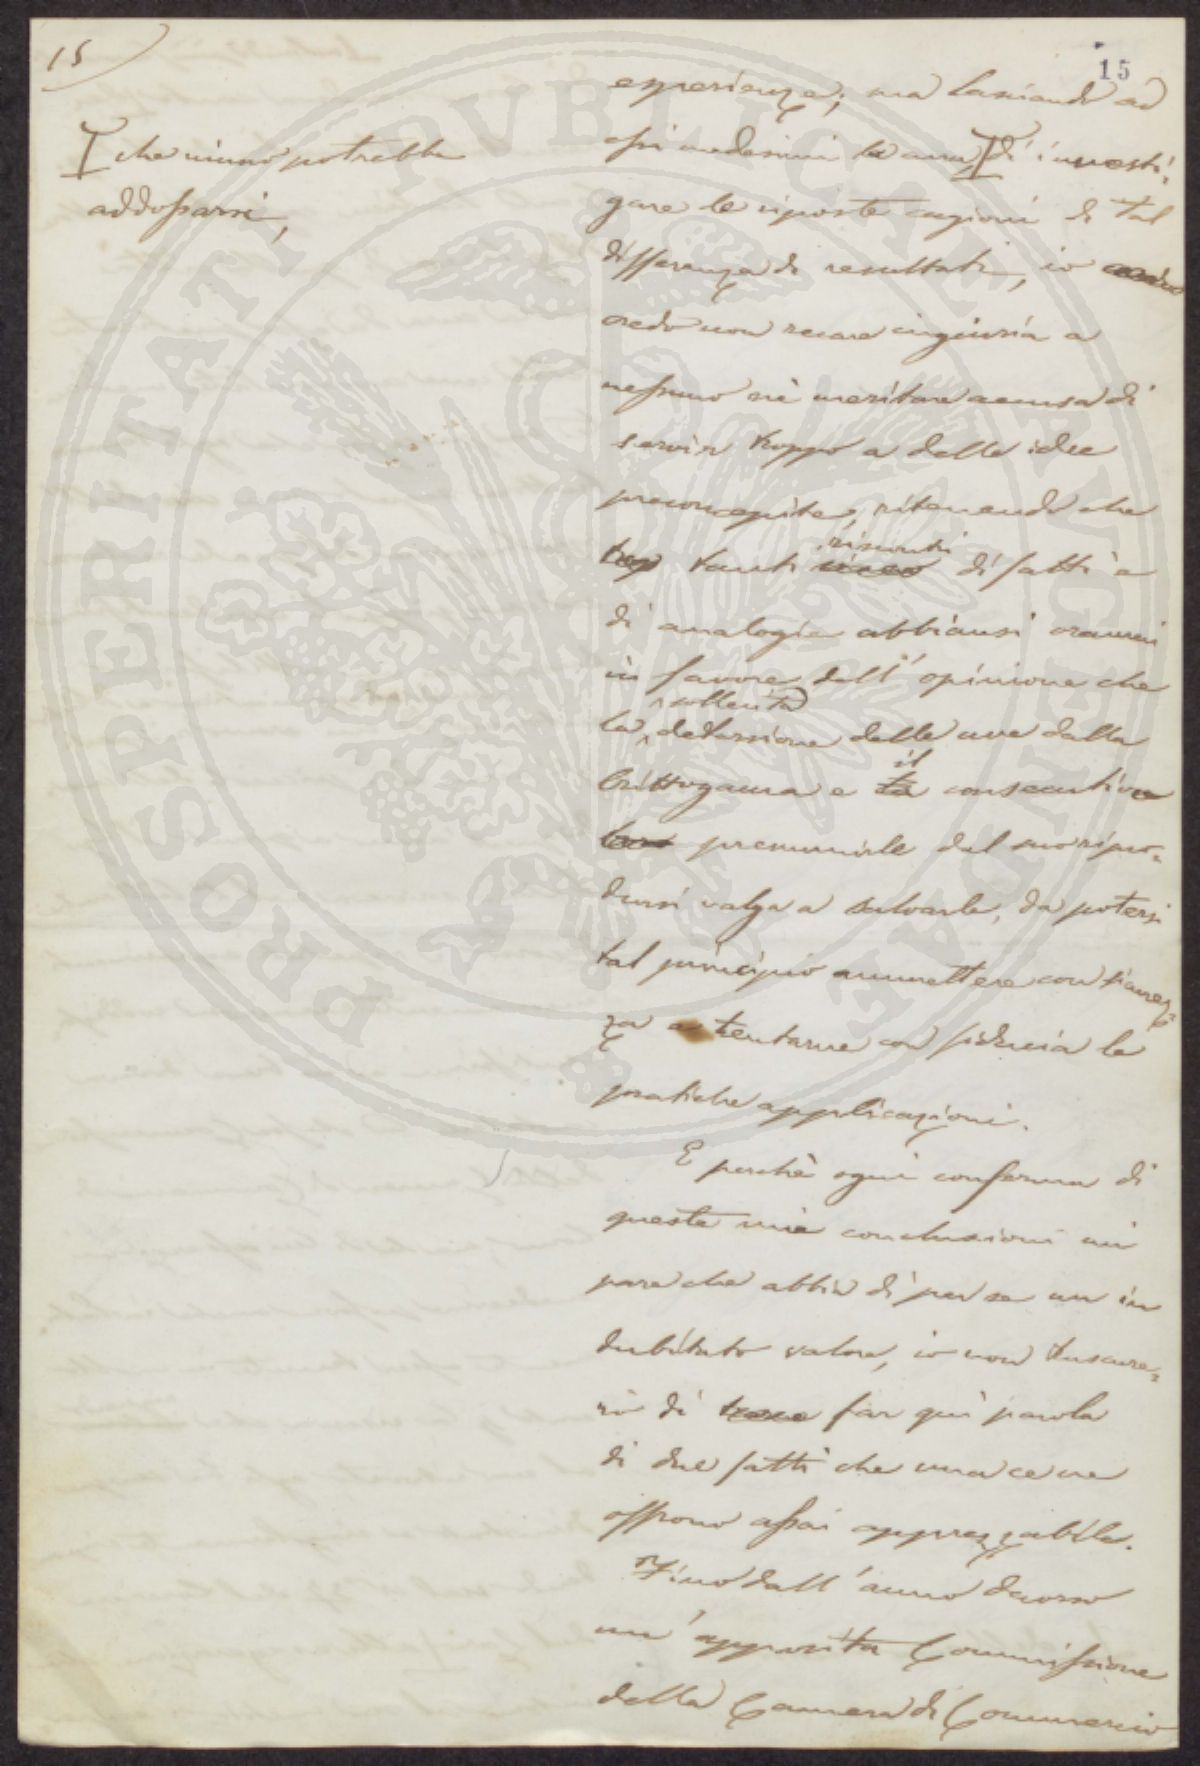 15
15
che niuno potrebbe
addossarsi,
esperienze; ma lasciando ad
essi medesimi la cura di investi-
gare le riposte cagioni di tal
differenza di resultati, io
credo non recare ingiuria a
nessuno nè meritare accusa di
servir troppo a delle idee
preconcepite, ritenendo che
trop tanti riscontri di fatti e
di analogie abbiansi oramai
in favore dell'opinione che
la sollecita detersione delle uve dalla
Crittogama e la il consecutivo
premunirle dal suo ripro-
dursi valga a salvarle, da potersi
tal principio ammettere con sicurez-
za e tentarne con fiducia le
pratiche applicazioni.
E perchè ogni conferma di
queste mie conclusioni mi
pare che abbia di per se un in
dubitato valore, io non trascure-
rò di far quì parola
di due fatti che una ce ne
offrono assai apprezzabile.
Fino dall'anno decorso
un'apposita Commissione
della Camera di Commercio
PROSPERITATI PVBLICAE AVGENDAE